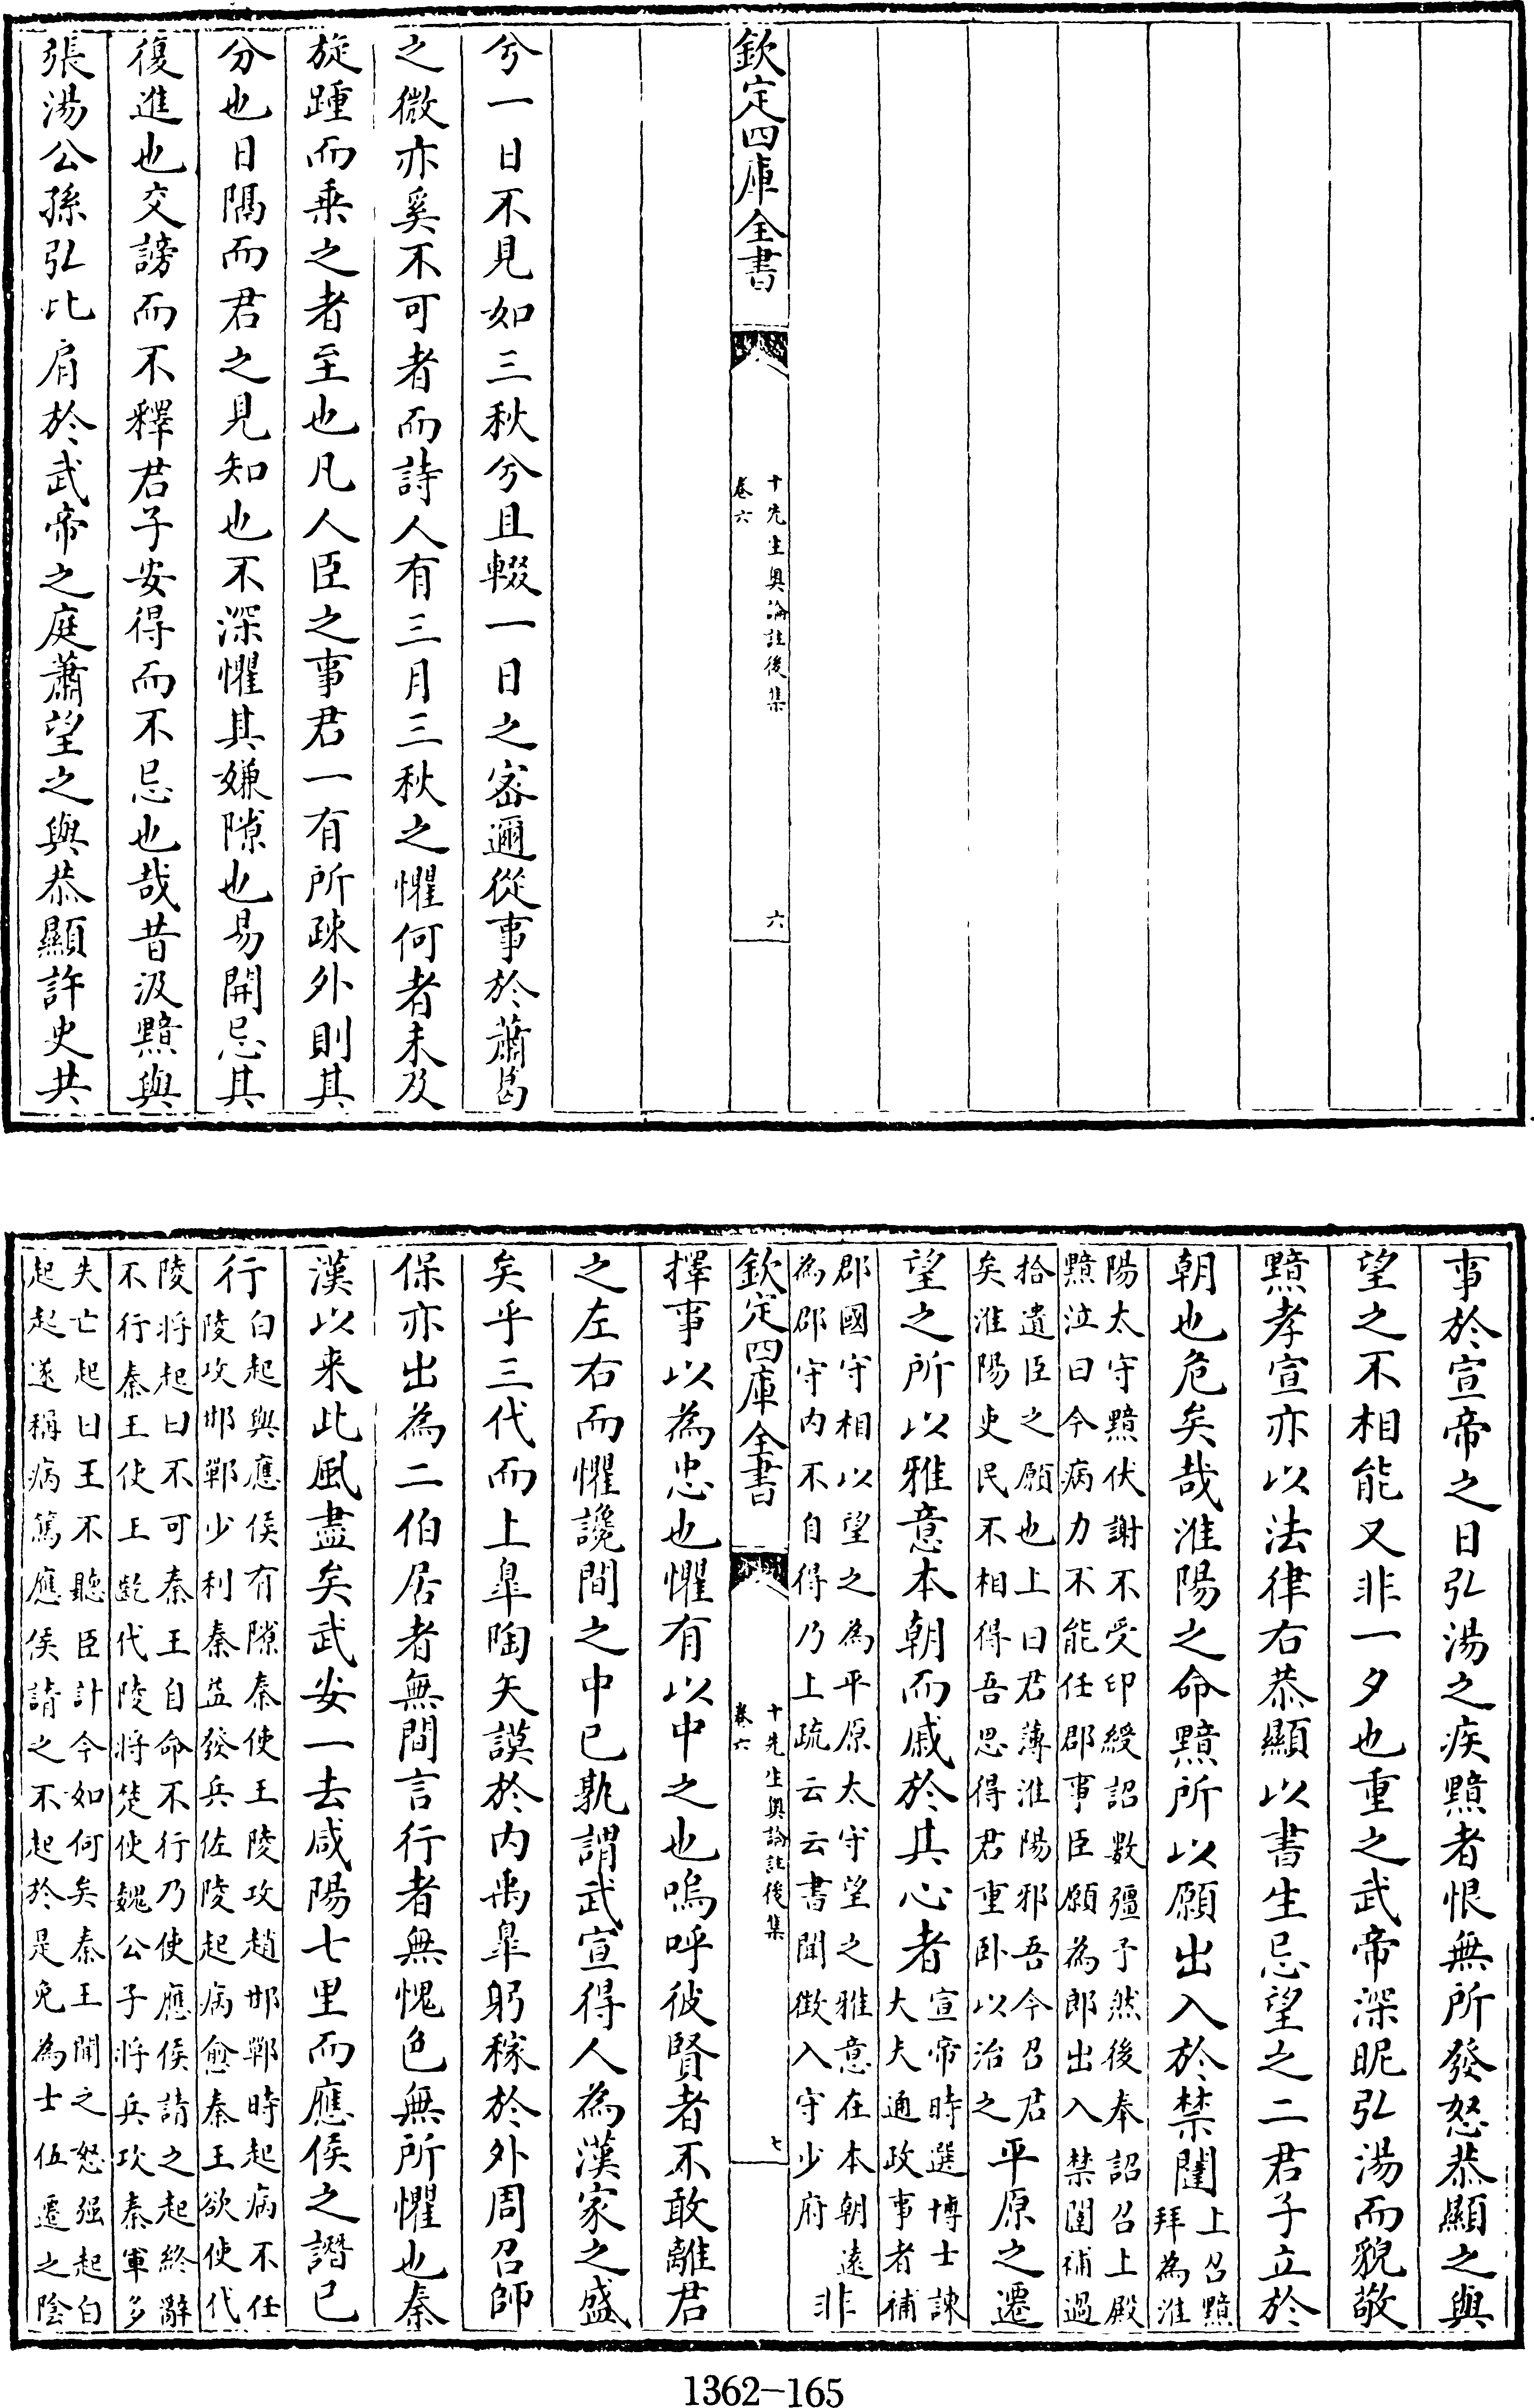 欽定四庫全書
十先生奥論註後集
卷六
六
兮一日不見如三秋兮且輟一日之宻邇從事於蕭葛
之微亦奚不可者而詩人有三月三秋之懼何者未及
旋踵而乗之者至也凡人臣之事君一有所疎外則其
分也日隔而君之見知也不深懼其嫌隙也易開忌其
復進也交謗而不釋君子安得而不忌也哉昔汲黯與
張湯公孫弘比肩於武帝之庭蕭望之與恭顯許史共
事於宣帝之日弘湯之疾黯者恨無所發怒恭顯之與
望之不相能又非一夕也重之武帝深昵弘湯而貌敬
黯孝宣亦以法律右恭顯以書生忌望之二君子立於
朝也危矣哉淮陽之命黯所以願出入於禁闥上召黯拜為淮
陽太守黯伏謝不受印綬詔數彊予然後奉詔召上殿
黯泣曰今病力不能任郡事臣願為郎出入禁闥補過
拾遺臣之願也上曰君薄淮陽邪吾今召君
矣淮陽吏民不相得吾思得君重卧以治之平原之遷
望之所以雅意本朝而戚於其心者宣帝時選博士諫大夫通政事者補
郡國守相以望之為平原太守望之雅意在本朝遠
為郡守内不自得乃上疏云云書聞徵入守少府非
欽定四庫全書
十先生奥論註後集
卷六
七
擇事以為忠也懼有以中之也嗚呼彼賢者不敢離君
之左右而懼讒間之中已孰謂武宣得人為漢家之盛
矣乎三代而上臯陶矢謨於内禹臯躬稼於外周召師
保亦出為二伯居者無間言行者無愧色無所懼也秦
漢以来此風盡矣武安一去咸陽七里而應侯之譖已
行白起與應侯有隙秦使王陵攻趙邯鄲時起病不任
陵攻邯鄲少利秦益發兵佐陵起病愈秦王欲使代
陵將起曰不可秦王自命不行乃使應侯請之起終辭
不行秦王使王齕代陵將楚使魏公子將兵攻秦軍多
失亡起曰王不聽臣計今如何矣秦王聞之怒强起白
起起遂稱病篤應侯請之不起於是免為士伍遷之陰
1362-165